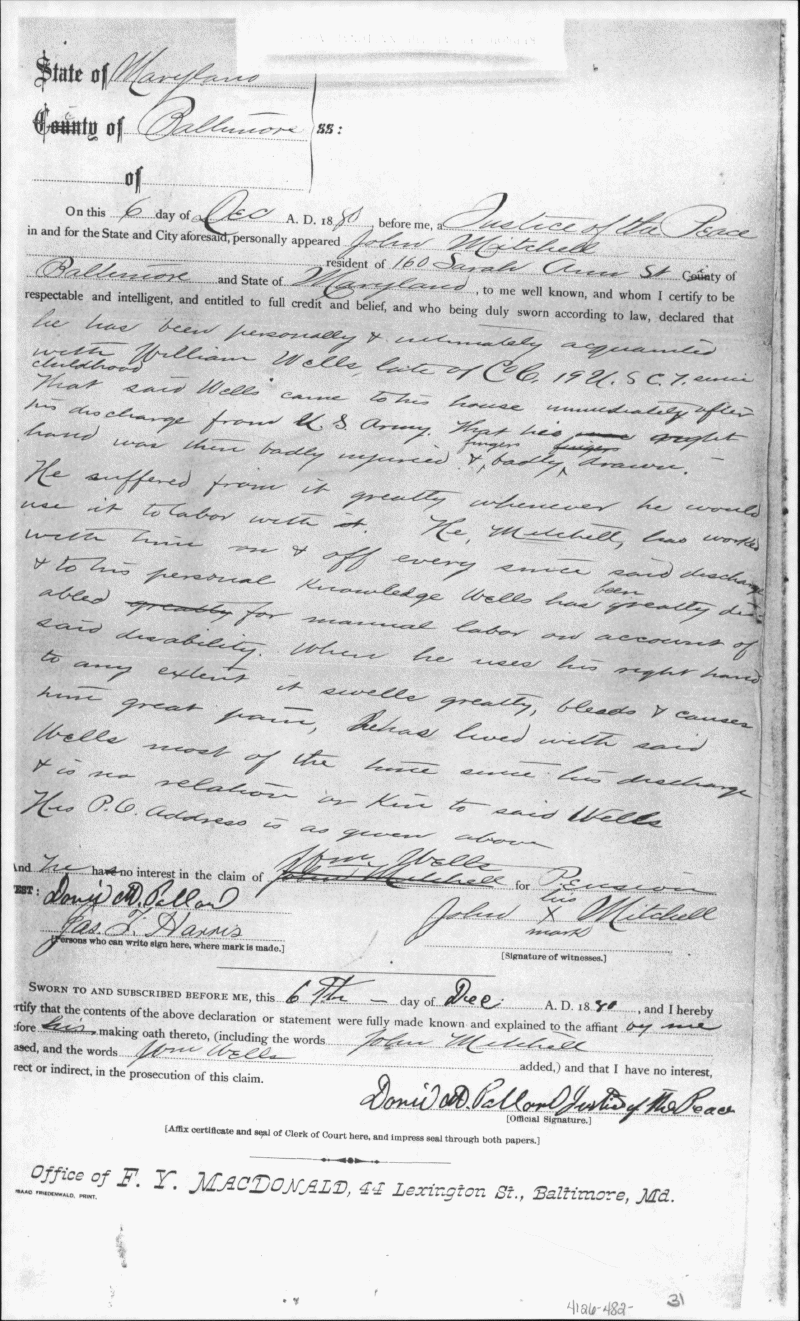 State of Maryland
County of Baltimore ss:
of
On this 6 day of Dec A. D. 1880 before me, a Justice of the Peace
in and for the State and City aforesaid, personally appeared John Mitchell
resident of 160 Sarah Ann St County of
Baltimore and State of Maryland, to me well known, and whom I certify to be
respectable and intelligent, and entitled to full credit and belief, and who being duly sworn according to law, declared that
he has been personally & intimately acquainted
with William Wells, late of Co C. 19 U. S C. T. since
childhood
That said Wells came to his house immediately after
his discharge from U S Army. That his right
hand was then badly injured & fingers badly drawn.
He suffered from it greatly whenever he would
use it to labor with it. He, Mitchell, has worked
with him on & off every since said discharge
& to his personal knowledge Wells has been greatly dis
abled greatly for manual labor on account of
said disability. When he uses his right hand
to any extent it swells greatly, bleeds & causes
him great pain, he has lived with said
Wells most of the time since his discharge
& is no relation or Kin to said Wells
His P.O. Address is as given above
And he has no interest in the claim of John Mitchell Wm Wells for Pension
EST: M. Pollard
Jas. T. Harris
[Persons who can write sign here, where mark is made.]
John his X mark Mitchell
[Signature of witnesses.]
SWORN TO AND SUBSCRIBED BEFORE ME, this 6th day of Dec A. D. 1880, and I hereby
rtify that the contents of the above declaration or statement were fully made known and explained to the affiant by me
efore his making oath thereto, (including the words John Mitchell
ased, and the words Wm Wells added,) and that I have no interest,
rect or indirect, in the prosecution of this claim.
M. Pollard Justice of the Peace
[Official Signature.]
[Affix certificate and seal of Clerk of Court here, and impress seal through both papers.]
Office of F. Y. MACDONALD, 44 Lexington St., Baltimore, Md.
ISAAC FRIEDENWALD, PRINT.
4126-482- 31